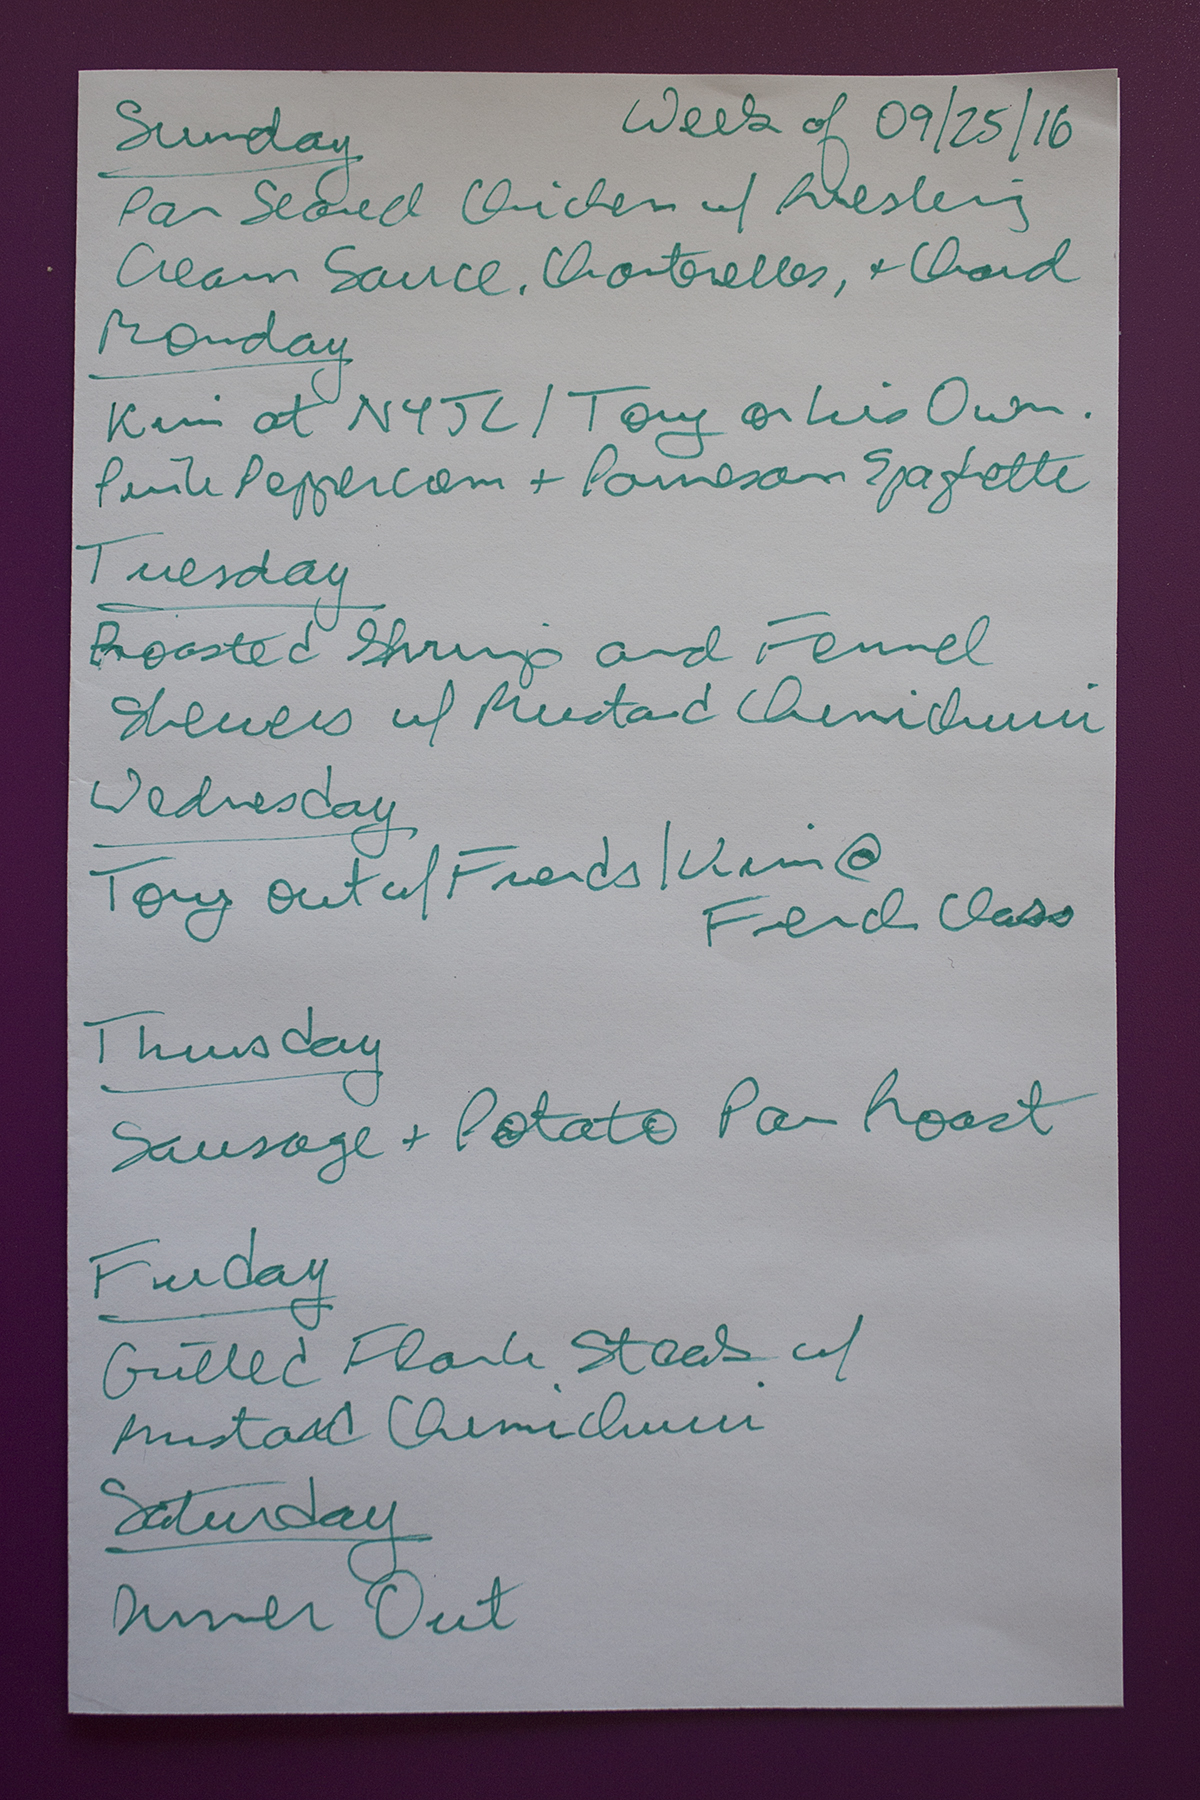 Week of 09/25/16
Sunday
Pan Seared Chicken w/ Riesling
Cream Sauce, Chanterelles, + Chard
Monday
Kim at NYJL / Tony on his Own.
Pink Peppercorn + Parmesan Spaghetti
Tuesday
Roasted Shrimp and Fennel
Skewers w/ Mustard Chimichurri
Wednesday
Tony out w/ Friends / Kim @
French Class
Thursday
Sausage + Potato Pan Roast
Friday
Grilled Flank Steak w/
Mustard Chimichurri
Saturday
Dinner Out